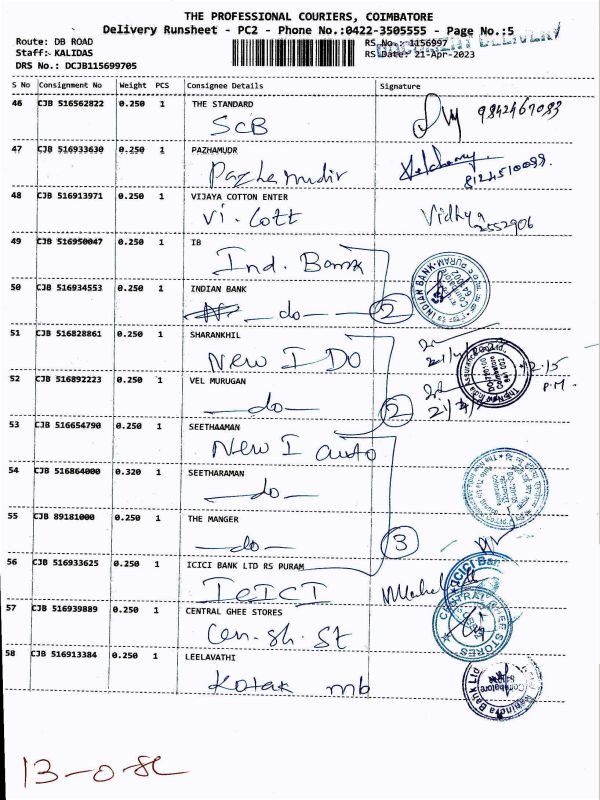 THE PROFESSIONAL COURIERS, COIMBATORE
Delivery Runsheet - PC2 - Phone No.:0422-3505555 - Page No.:5
Route: DB ROAD
Staff: KALIDAS
DRS No.: DCJB115699705
RS No.: 1156997
RS Date: 21-Apr-2023
DELIVERY
S No Consignment No Weight PCS Consignee Details Signature
46 CJB 516562822 0.250 1 THE STANDARD
SCB 9842467083
47 CJB 516933630 0.250 1 PAZHAMUDR
Pazhamudir
8124510099.
48 CJB 516913971 0.250 1 VIJAYA COTTON ENTER
Vi. Cott Vidhya
2552906
49 CJB 516950047 0.250 1 IB
Ind. Bank
INDIAN BANK
50 CJB 516934553 0.250 1 INDIAN BANK
do 2
51 CJB 516828861 0.250 1 SHARANKHIL
New I DO
2.15
P.M.
52 CJB 516892223 0.250 1 VEL MURUGAN
do 2
53 CJB 516654790 0.250 1 SEETHAAMAN
New I auto
54 CJB 516864000 0.320 1 SEETHARAMAN
do
55 CJB 89181000 0.250 1 THE MANGER
do 3
56 CJB 516933625 0.250 1 ICICI BANK LTD RS PURAM
ICICI
ICICI Bank
57 CJB 516939889 0.250 1 CENTRAL GHEE STORES
Cen. Gh. St
CENTRAL GHEE STORES
58 CJB 516913384 0.250 1 LEELAVATHI
Kotak mb
Mahindra Bank Ltd
Coimbatore